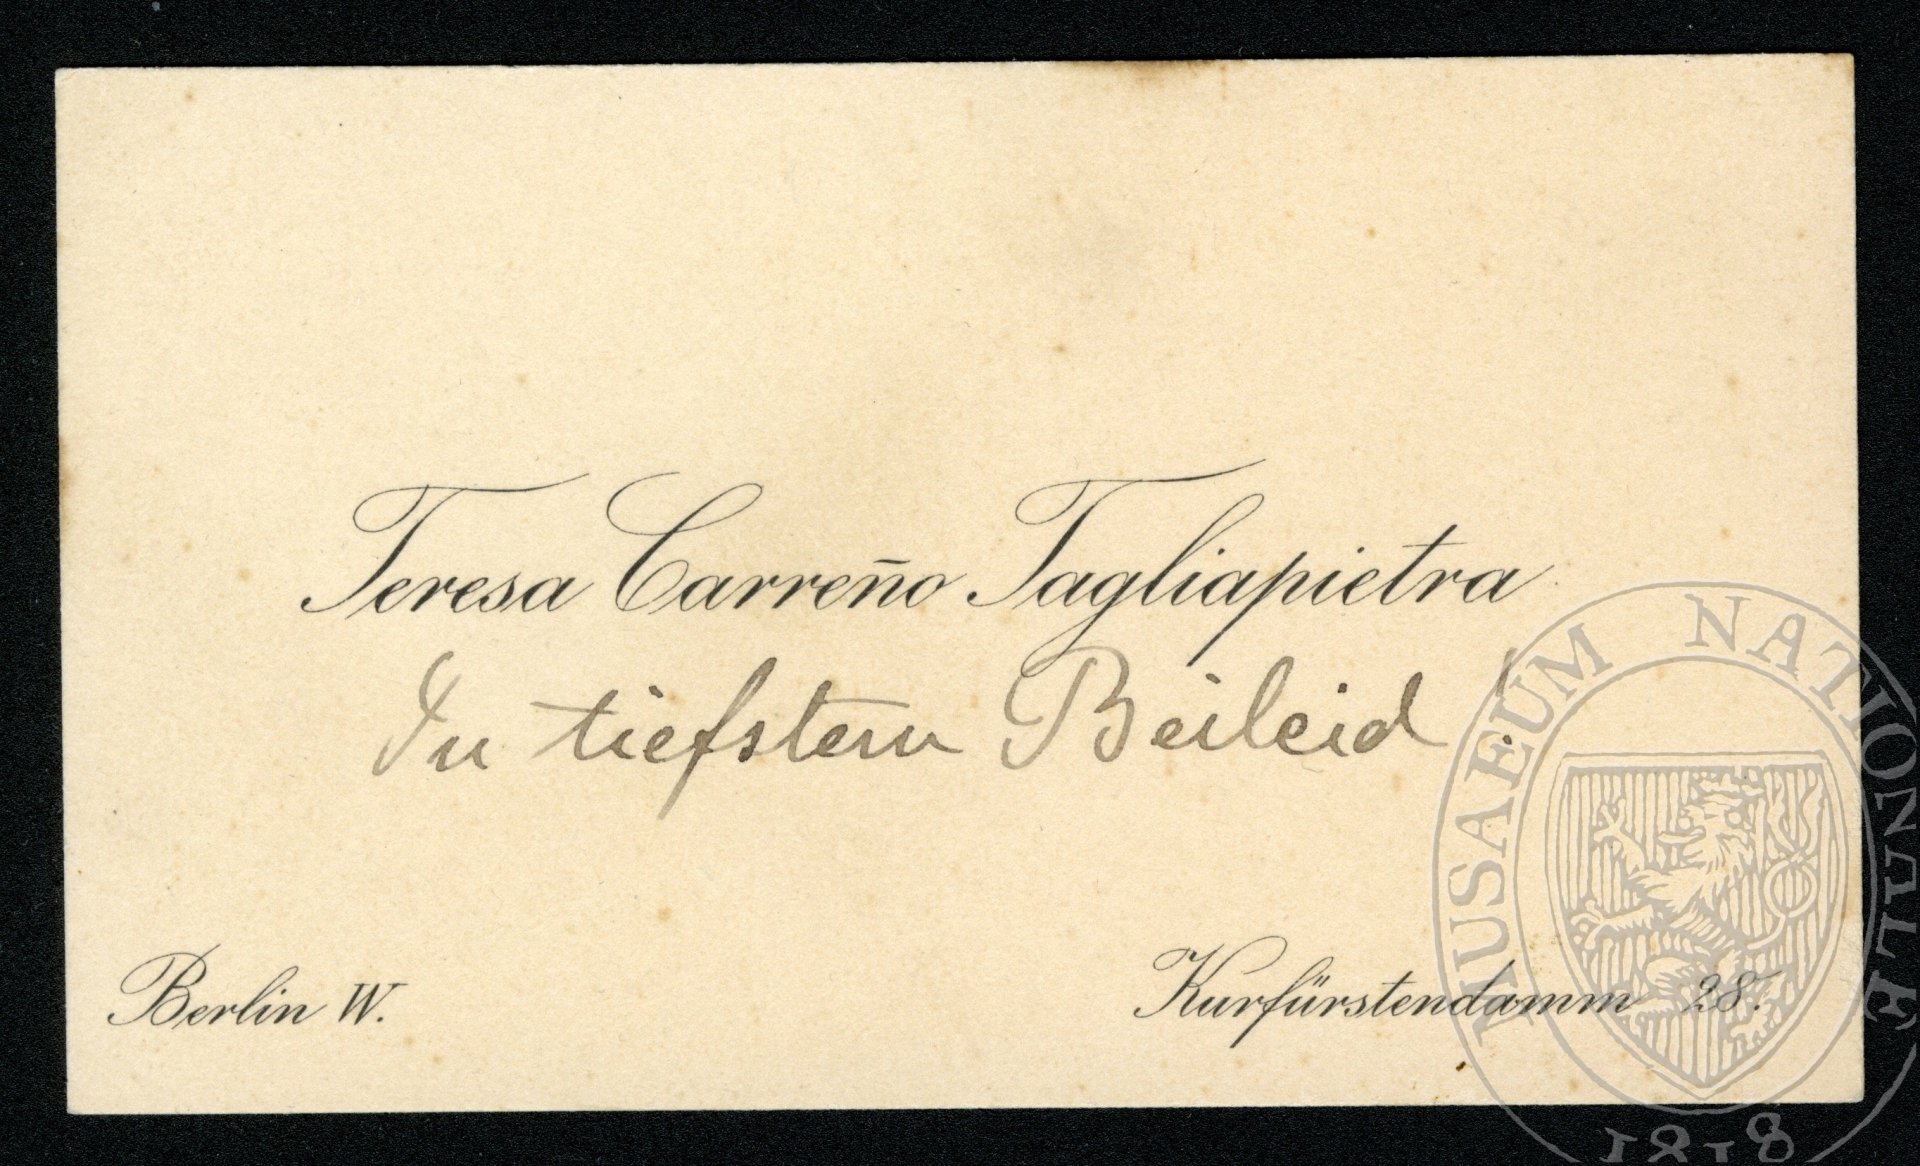 Teresa Carreño Tagliapietra
In tiefstem Beileid!
Berlin W.
Kurfürstendamm 28.
MUSAEUM NATIONALE
1818